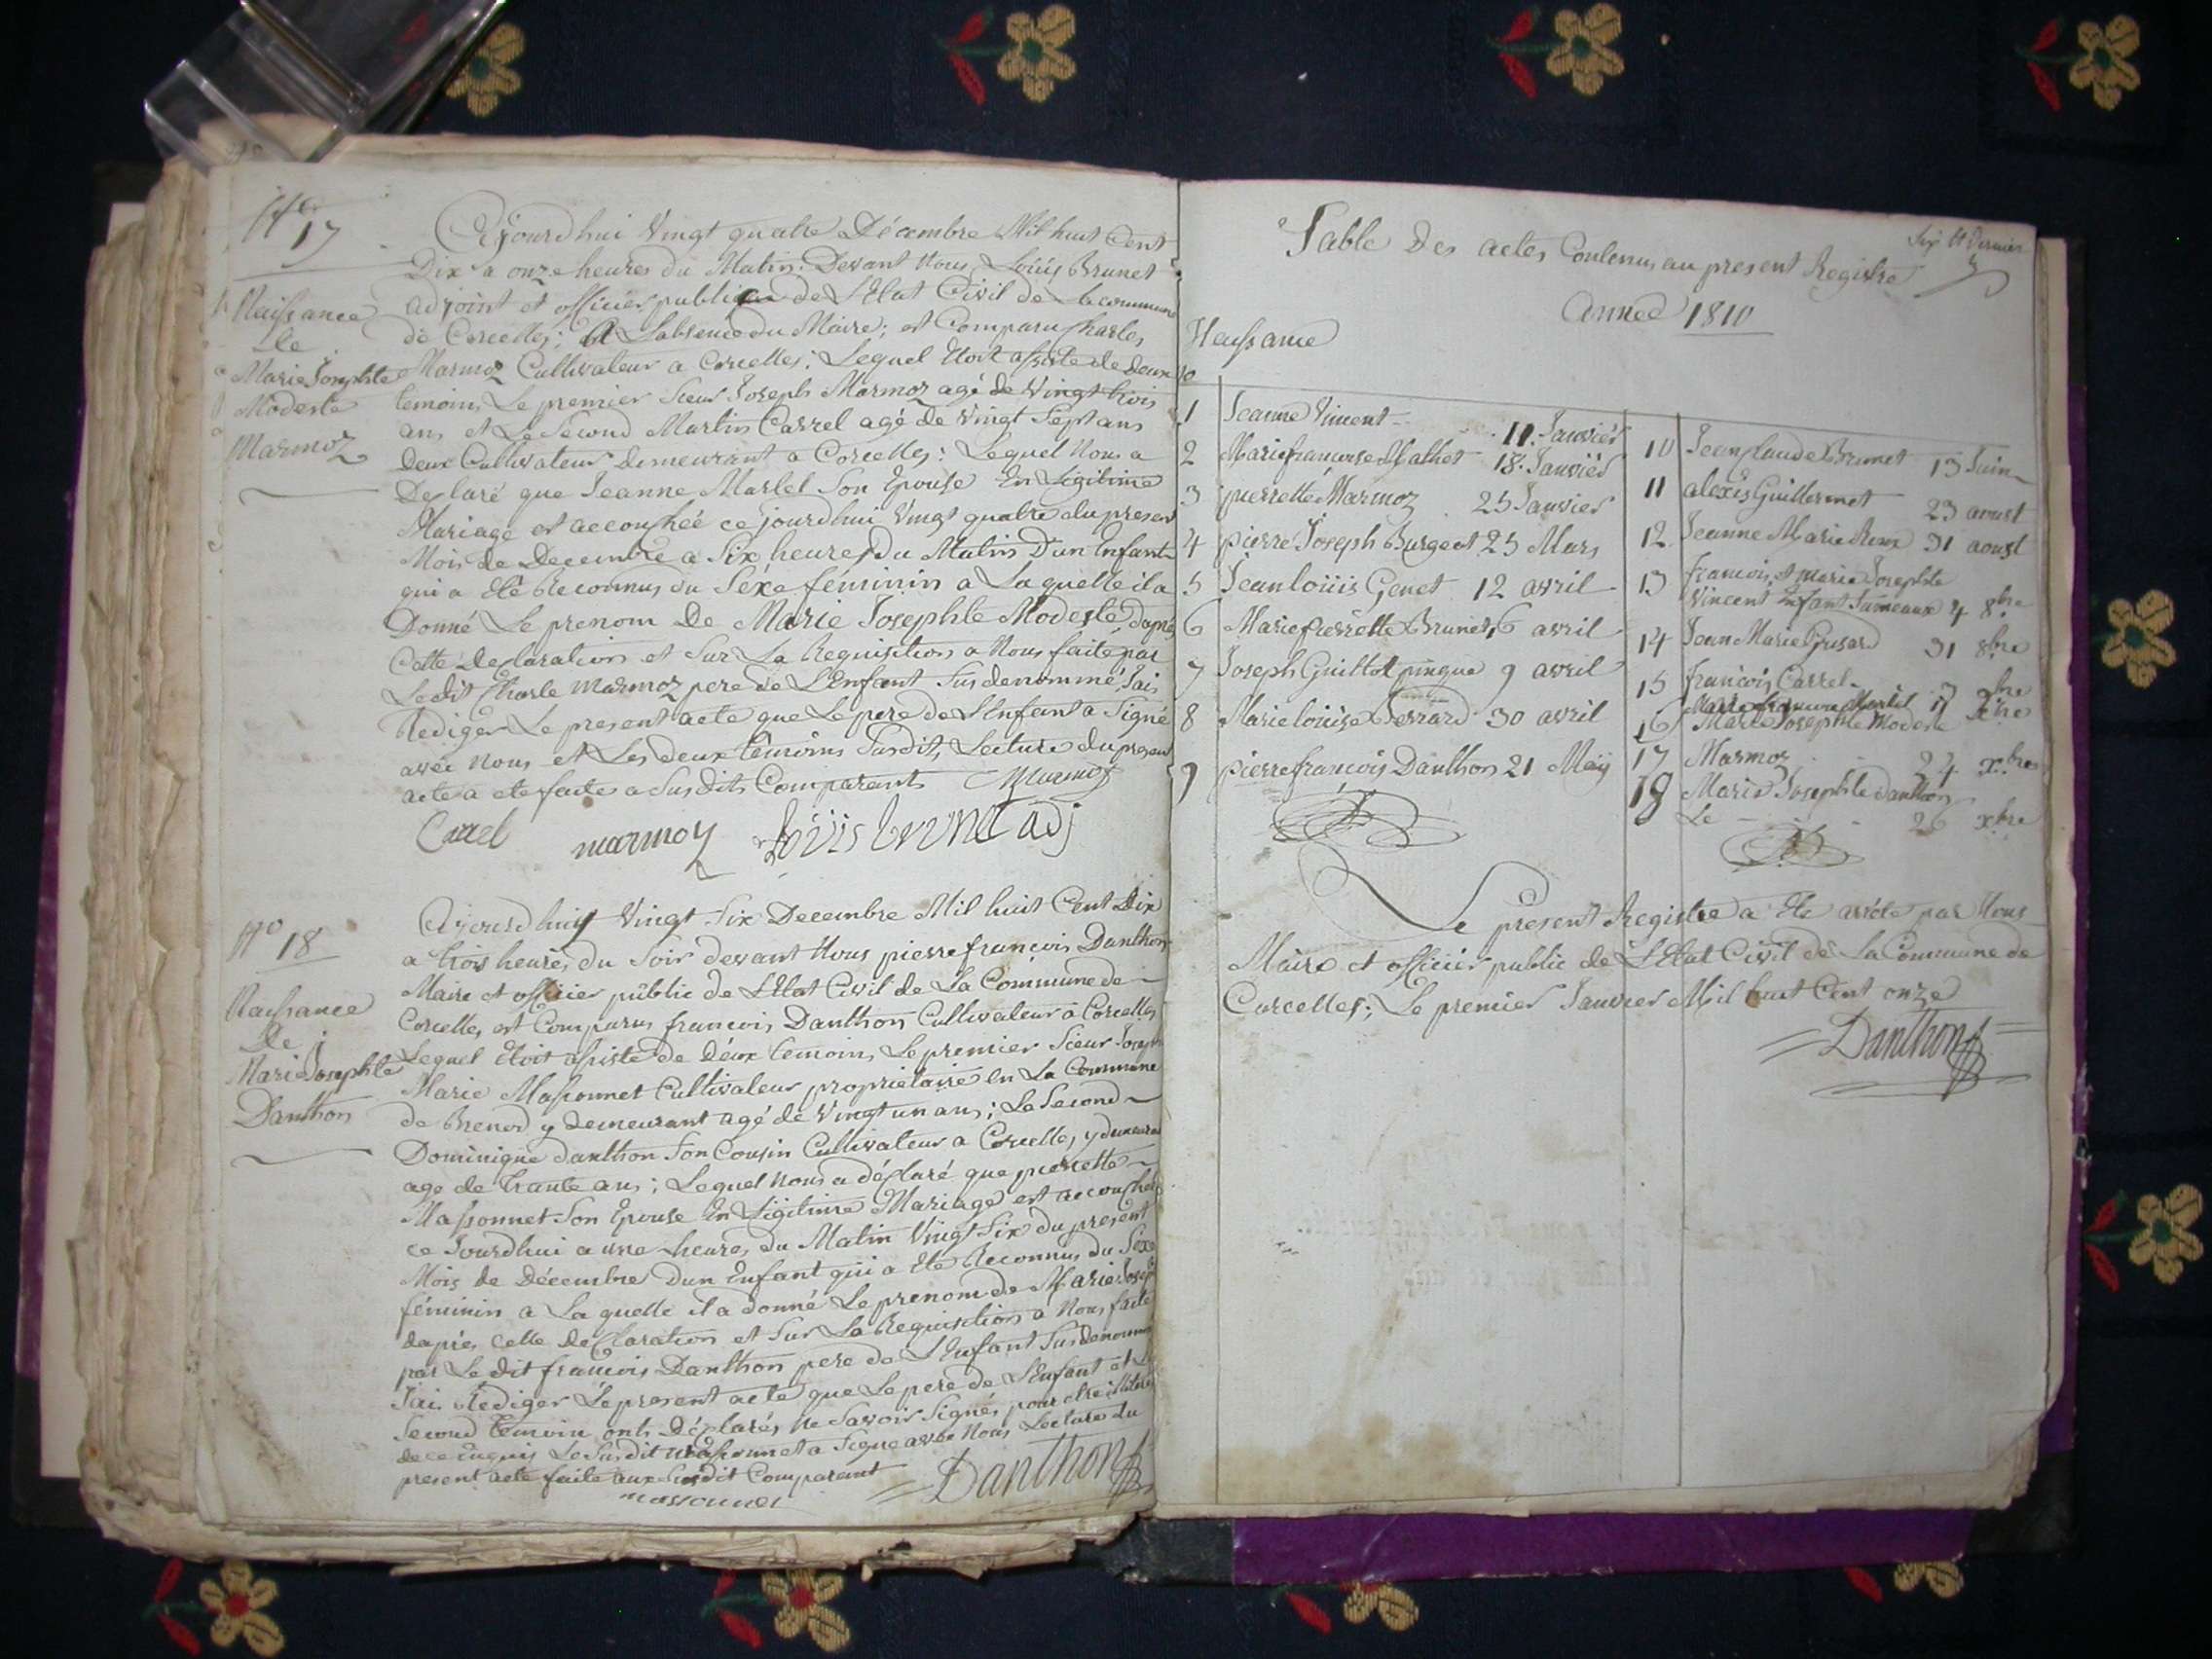 No 17
Naissance
De
Marie Josephte
Modeste
Marmoz
Cejourdhui Vingt quatre Décembre Mil huit Cent
Dix a onze heures du Matin: Devant Nous Loüis Brunet
adjoint et officier public de L'Etat Civil de la commune
de Corcelles; A Labsence du Maire; est Comparu Charles
Marmoz Cultivateur a Corcelles: Lequel Etoit assisté de deux
temoins Le premier Sieur Joseph Marmoz agé de Vingt trois
ans et Le Second Martin Carrel agé de Vingt Sept ans
Deux Cultivateurs Demeurant a Corcelles: Lequel Nous a
Declaré que Jeanne Martel Son Epouse En Légitime
Mariage est accouchée cejourdhui Vingt quatre du present
Mois de Decembre a Six heures du Matin D'un Enfant
qui a Eté Reconnus du Séxe féminin a Laquelle il a
Donné Le prenom De Marie Josephte Modeste dapres
Cette Declaration et Sur La Requisition a Nous faite par
Ledit Charle Marmoz pere de L'Enfant Susdenommé, Jais
Rediger Le present acte que Le pere de L'Enfant a Signé
avec Nous et Les deux témoins Susdit, Lecture du present
acte a ete faite a Susdits Comparants Marmoz
Carrel marmoz Loüis brunet adj
No 18
Naissance
De
Marie Josephte
Danthon
Cejourdhuy Vingt Six Decembre Mil huit Cent Dix
a trois heures du Soir devant Nous pierre françois Danthon
Maire et officier public de L'Etat Civil de La Commune de
Corcelles est Comparus françois Danthon Cultivateur a Corcelles
Lequel Etoit assisté de Deux temoins Le premier Sieur Joseph
Marie Massonnet Cultivateur propriétaire en La Commune
de Brenod y demeurant agé de Vingt un ans; Le Second
Dominique danthon Son Cousin Cultivateur a Corcelles y demeurant
agé de trante ans; Lequel Nous a déclaré que pierrette
Massonnet Son Epouse En Légitime Mariage est accouchée
ce Jourdhui a une heures du Matin Vingt Six du present
Mois de Décembre D'un Enfant qui a Eté Reconnus du Séxe
féminin a La quelle il a donné Le prenom de Marie Joseph
dapres Cette Declaration et Sur La Requisition a Nous faite
par Le dit françois Danthon pere de L'Enfant Susdenommé
Jais Rediger Le present acte que Le pere de L'Enfant et Le
Second temoin onts Déclarés Ne Savoir Signés pour etre illiteré
de ce Enquis Le Susdit Massonnet a Signé avec Nous Lecture du
present acte faite aux Susdit Comparant
massonnet Danthon
Six et Dernier
Table Des actes Contenus au present Registre
Année 1810
Naissance
No
1 Jeanne Vincent 11 Janvier
2 Marie françoise Mathet 18 Janvier
3 pierrette Marmoz 25 Janvier
4 pierre Joseph Burgeot 25 Mars
5 Jean loüis Genet 12 avril
6 Marie pierrette Brunet 6 avril
7 Joseph Guillot pingue 9 avril
8 Marie loüise Ferrard 30 avril
9 pierre françois Danthon 21 Maÿ
10 Jean Claude Brunet 13 Juin
11 alexis Guillermet 23 aoust
12 Jeanne Marie Roux 31 aoust
13 francois et marie Josephte
Vincent Enfant Jumeaux 4 8bre
14 Jean Marie Gusard 31 8bre
15 françois Carrel 9bre
Marie françoise Martel xbre
16 Marie Josephte Modeste
17 Marmoz 24 xbre
18 Marie Josephte danthon
Le 26 xbre
Le present Registre a Eté arrété par Nous
Maire et officier public de L'Etat Civil de La Commune de
Corcelles; Le premier Janvier Mil huit Cent onze
Danthon